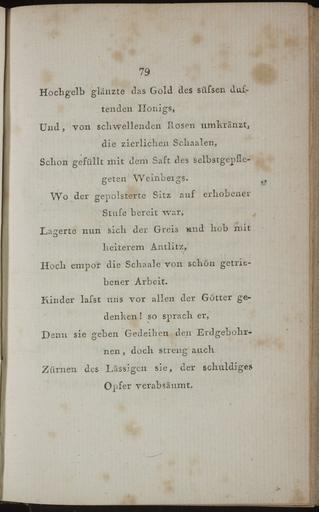 79
Hochgelb glänzte das Gold des süfsen duf-
tenden Honigs,
Und, von schwellenden Rosen umkränzt,
die zierlichen Schaalen,
Schon gefüllt mit dem Saft des selbstgepfle-
geten Weinbergs.
Wo der gepolsterte Sitz auf erhobener
Stufe bereit war,
Lagerte nun sich der Greis und hob mit
heiterem Antlitz,
Hoch empor die Schaale von schön getrie-
bener Arbeit.
Kinder lafst uns vor allen der Götter ge-
denken! so sprach er,
Denn sie geben Gedeihen den Erdgebohr-
nen, doch streng auch
Zürnen des Lässigen sie, der schuldiges
Opfer verabsäumt.